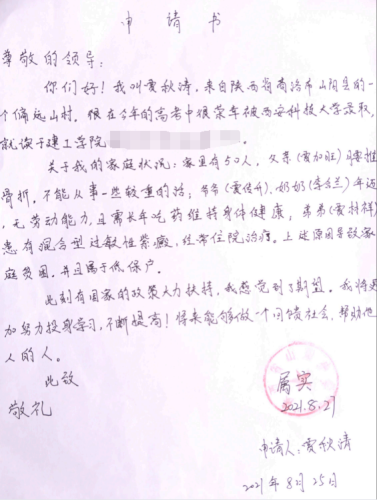 申请书
尊敬的领导:
你们好!我叫贾秋涛,来自陕西省商洛市山阳县的一
个偏远山村。很在今年的高考中很荣幸被西安科技大学录取,
就读于建工学院
关于我的家庭状况:家里有5口人,父亲(贾加旺)腰椎
骨折,不能从事一些较重的活,爷爷(贾),奶奶(李)年迈
,无劳动能力,且需长年吃药维持身体健康,弟弟(贾)
患有混合型过敏性紫癜,经常住院治疗。上述原因导致家
庭贫困,并且属于低保户。
此刻有国家的政策大力扶持,我感觉到了期望。我将更
加努力投身学习,不断提高!将来能够做一个回馈社会,帮助他
人的人。
此致
敬礼
属实
2021.8.27
申请人:贾秋涛
2021年8月25日